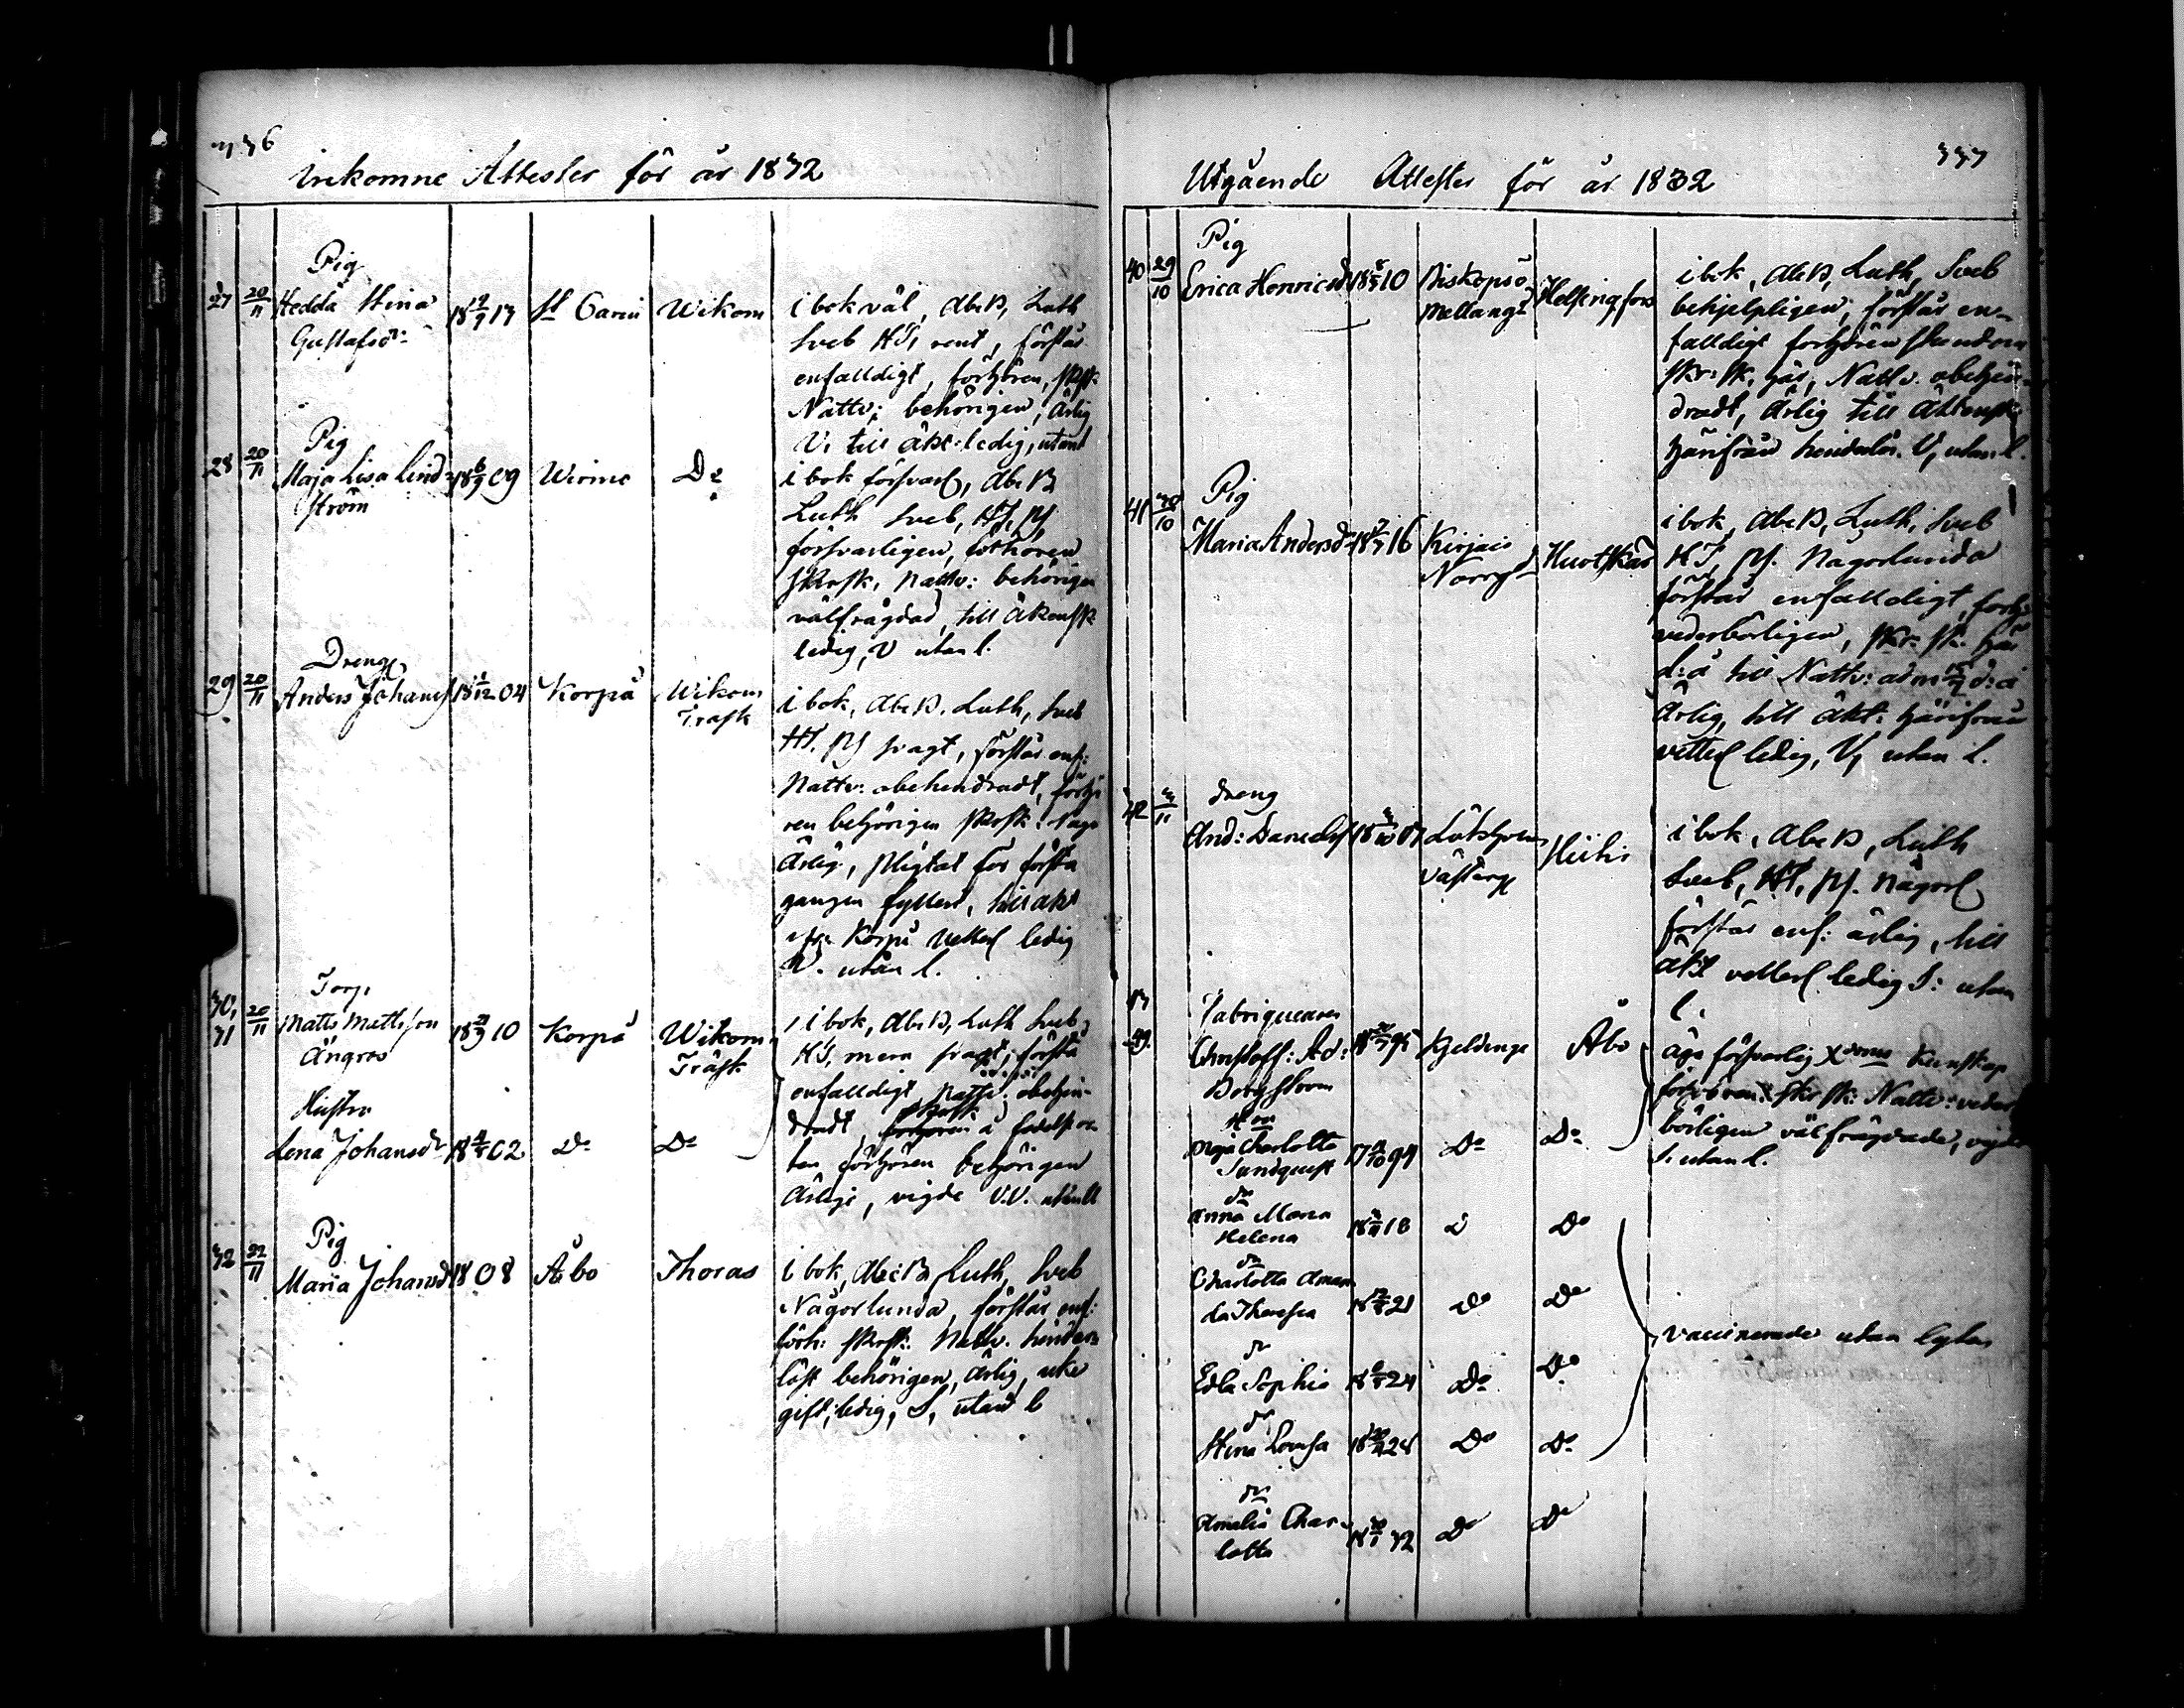 336
Inkomne Attester för år 1832
27 20/11 Pig
Hedda Stina
Gustafsdr
18 9/7 13 St Carin Wikom
i bok väl, Abc B, Luth
Sveb HT, rent, förstår
enfalldigt, förhören, skrsk.
Nattv: behörigen, ärlig
V, till äkt: ledig, utan l
28 20/11 Pig
Maja Lisa Lind-
ström
18 6/7 09 Wirmo Do
i bok försvarl, Abc B
Luth Sveb, HT, Ps
försvarligen, förhören
skrsk, Nattv: behörigen
välfrägdad, till äktensk
ledig, V utan l.
29 20/11 Dreng
Anders Johanss 18 1/12 04 Korpo Wikom
Träsk
i bok, Abc B. Luth, Sveb
HT. Ps svagt, förstår enf:
Nattv: obehindradt, förhö
ren behörigen skrsk: Någo
Ärlig, pligtat för första
gången fylleri, till äkt
ifr. Korpo vetterl ledig
V. utan l.
30, 31 20/11 Torp.
Matts Mattsson
Ängros
18 21/9 10 Korpo Wikom
Träsk
i bok, Abc B, Luth Sveb,
HT, mera svagt; förstå
enfalldigt, Nattv: obehin-
dradt
ten förhören behörigen
ärlige, vigde V.V. utan l
Hustru
Lena Johansdr 18 4/5 02 Do Do
32 22/11 Pig
Maria Johansd 1808 Åbo Thoras
i bok, Abc B Luth, Sveb
Någorlunda, förstår enf:
förh: skrsk. Nattv. hinder-
löst behörigen, ärlig, icke
gift, ledig, S, utan l
337
Utgående Attester för år 1832
40 29/10 Pig
Erica Henricsd 18 8/5 10 Biskopsö
Mellang
Helsingfors
i bok, Abc B, Luth, Sveb
behjelpligen, förstår en-
falldigt förhören stundom
skr: sk. här, Nattv. obehin-
dradt, ärlig till äktensk
härifrån hinderlös. V, utan l.
41 30/10 Pig
Maria Andersdr 18 9/7 16 Kirjais
Norrgd
Huotskär
i bok, Abc B, Luth, Sveb
HT, Ps. Någorlunda
förstår enfalldigt, förh:
vederbörligen, skr: sk. här
d:o till Nattv: adm 15/7 d:å
Ärlig, till äkt: härifrån
vetterl ledig, V, utan l.
42 3/11 dreng
And: Danielss 18 3/10 07 Lökholm
Västerg
Hitis
i bok, Abc B, Luth
Sveb, HT, Ps. Någorl
förstår enf: ärlig, till
äkt vetterl ledig S: utan
l.
43
-49. Fabriqueuren
Christoff: Ad:
Borgstrom
Kjeldinge Åbo
äga försvarlig Xdoms Kunskap
förhören: skr sk: Nattv: veder
börligen välfrägdade, vigde
S. utan l.
Hon
Maja Charlotta
Sundquist
17 4/10 94 Do Do
dr
Anna Maria
Helena
18 3/11 18 D Do
dr
Charlotta Aman
da Theresia
18 12/8 21 Do Do
vaccinerade utan lyten
dr
Edla Sophia 18 6/8 24 Do Do
dr
Stina Lovisa Do Do
dr
Amalia Char-
lotta
32 Do Do